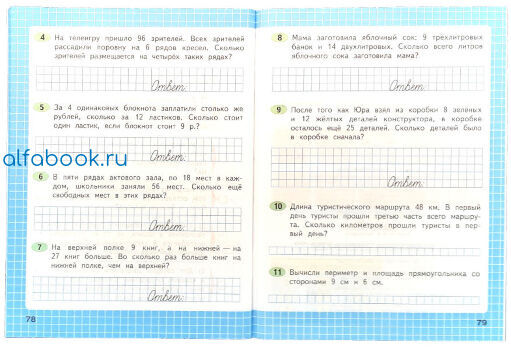 4 На телеигру пришло 96 зрителей. Всех зрителей
рассадили поровну на 6 рядов кресел. Сколько
зрителей размещается на четырёх таких рядах?
Ответ:
5 За 4 одинаковых блокнота заплатили столько же
рублей, сколько за 12 ластиков. Сколько стоит
один ластик, если блокнот стоит 9 р.?
Ответ:
alfabook.ru
6 В пяти рядах актового зала, по 18 мест в каж-
дом, школьники заняли 56 мест. Сколько ещё
свободных мест в этих рядах?
Ответ:
7 На верхней полке 9 книг, а на нижней — на
27 книг больше. Во сколько раз больше книг на
нижней полке, чем на верхней?
Ответ:
78
8 Мама заготовила яблочный сок: 9 трёхлитровых
банок и 14 двухлитровых. Сколько всего литров
яблочного сока заготовила мама?
Ответ:
9 После того как Юра взял из коробки 8 зелёных
и 12 жёлтых деталей конструктора, в коробке
осталось ещё 25 деталей. Сколько деталей было
в коробке сначала?
Ответ:
10 Длина туристического маршрута 48 км. В первый
день туристы прошли третью часть всего маршру-
та. Сколько километров прошли туристы в пер-
вый день?
11 Вычисли периметр и площадь прямоугольника со
сторонами 9 см и 6 см.
79